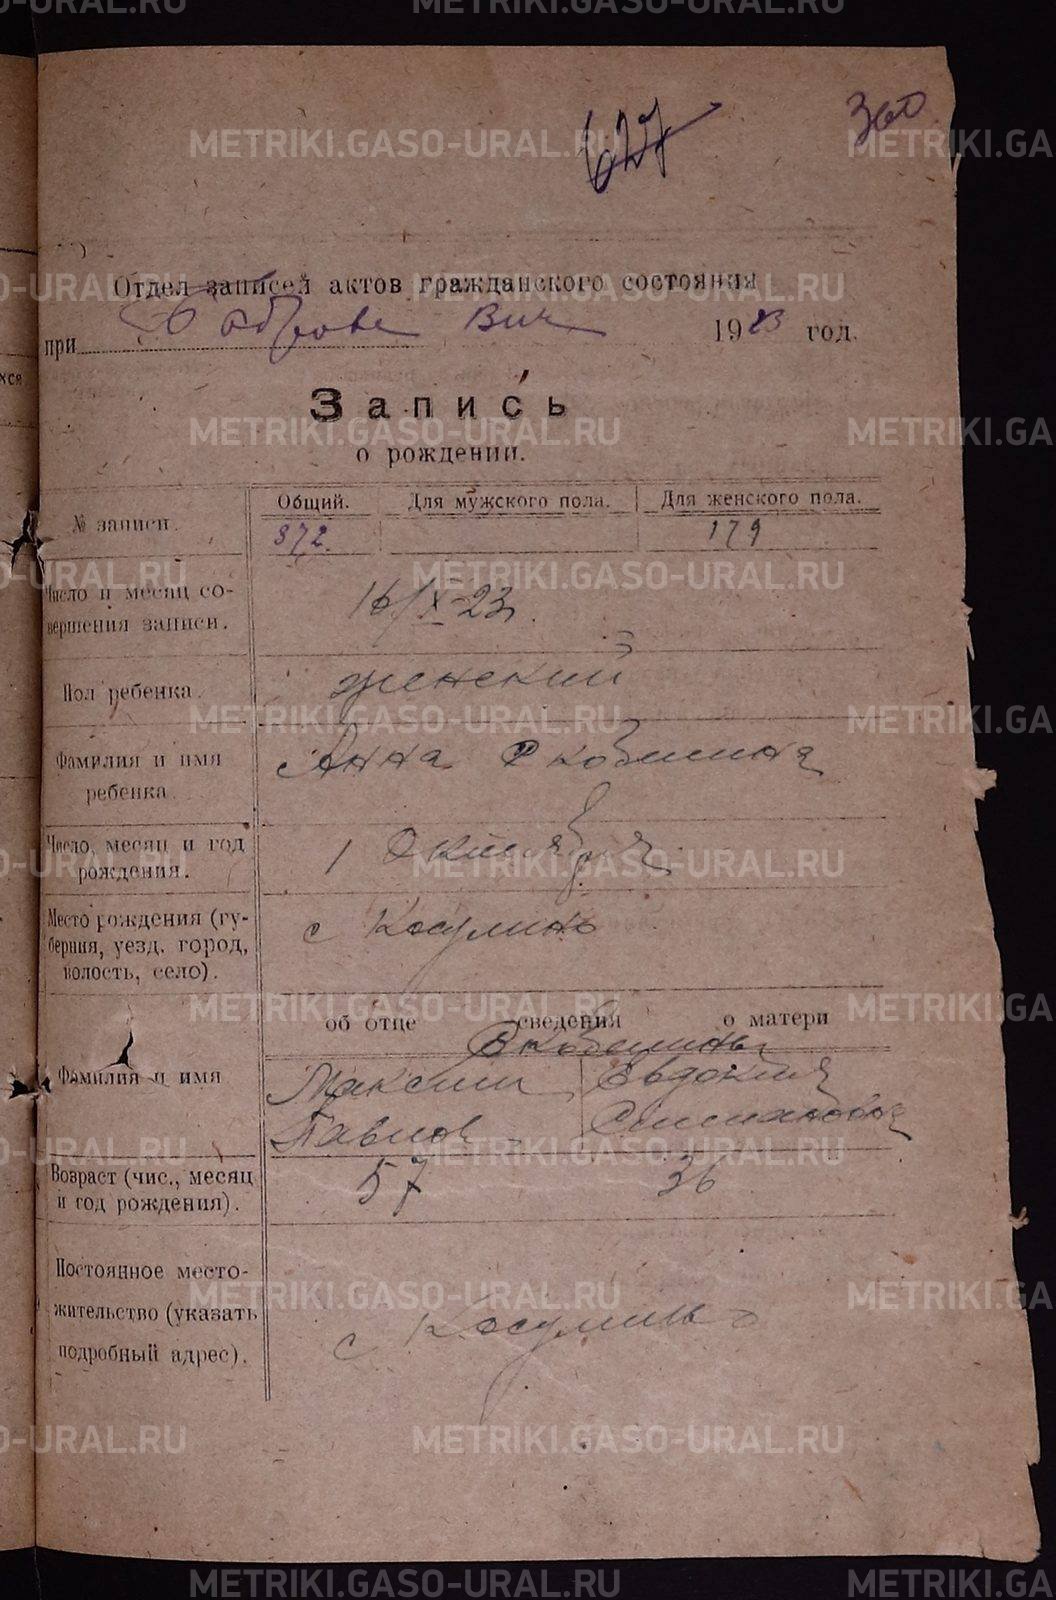 METRIKI.GASO-URAL.RU
627
360
Отдел записей актов гражданского состояния
при Боброве Вик 1923 год.
Запись
о рождении.
№ записи. Общий. Для мужского пола. Для женского пола.
372. 179
Число и месяц со-
вершения записи. 16/X-23
Пол ребенка. женский
Фамилия и имя
ребенка Анна Скобелина
Число, месяц и год
рождения. 1 Октября
Место рождения (гу-
берния, уезд, город,
волость, село). с Косулино
об отце сведения о матери
Скобелины
Фамилия и имя Максим Евдокия
Павлов
Возраст (чис., месяц
и год рождения). 57 36
Постоянное место-
жительство (указать
подробный адрес). с Косулино